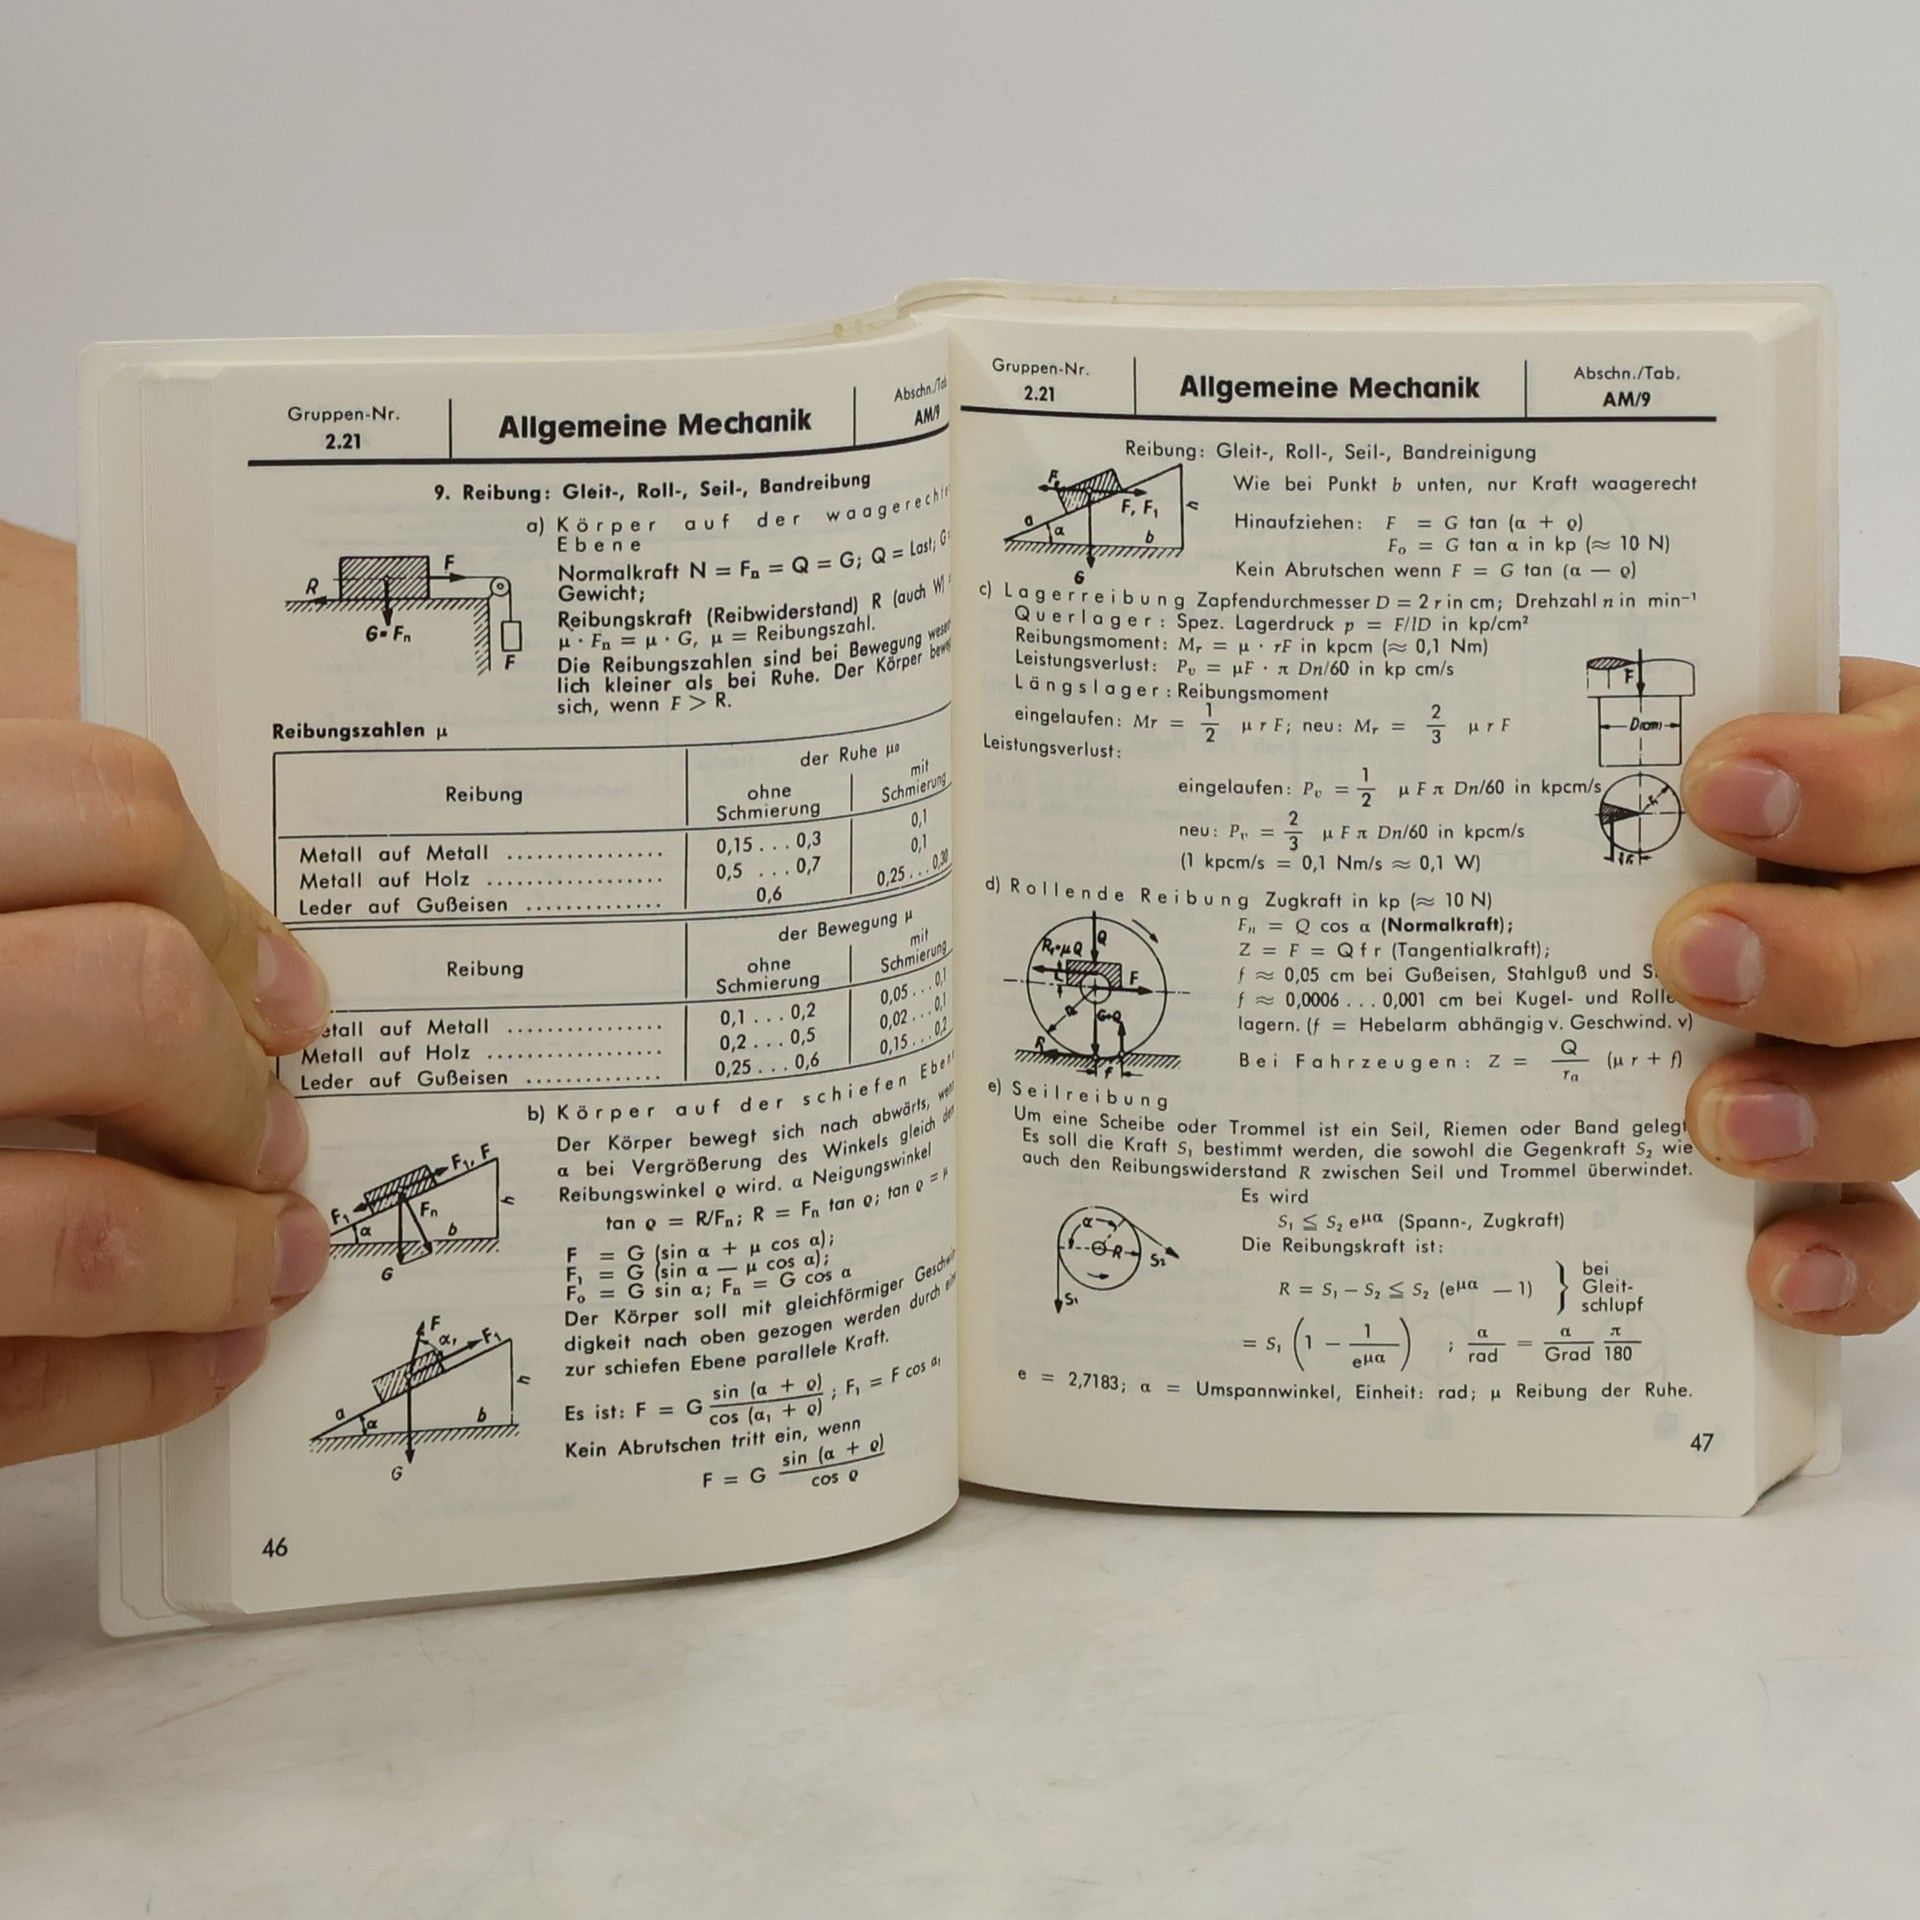 Gruppen-Nr.
2.21
Allgemeine Mechanik
Abschn./Tab.
AM/9
9. Reibung: Gleit-, Roll-, Seil-, Bandreibung
a) Körper auf der
Ebene
Normalkraft N = Fn = Q = G; Q = Last;
Gewicht;
Reibungskraft (Reibwiderstand) R (auch W)
μ · Fn = μ · G, μ = Reibungszahl.
Die Reibungszahlen sind bei Bewegung
lich kleiner als bei Ruhe. Der Körper
sich, wenn F > R.
R
F
G=Fn
F
Reibungszahlen μ
Reibung
der Ruhe μ₀
ohne
Schmierung
mit
Schmierung
Metall auf Metall ................ 0,15 . . . 0,3 0,1
Metall auf Holz .................. 0,5 . . . 0,7 0,1
Leder auf Gußeisen .............. 0,6 0,25 . . . 0,30
Reibung
der Bewegung μ
ohne
Schmierung
mit
Schmierung
etall auf Metall ................ 0,1 . . . 0,2 0,05 . . . 0,1
Metall auf Holz .................. 0,2 . . . 0,5 0,02 . . . 0,1
Leder auf Gußeisen .............. 0,25 . . . 0,6 0,15 . . . 0,2
b) Körper auf der schiefen
Der Körper bewegt sich nach abwärts,
α bei Vergrößerung des Winkels gleich
Reibungswinkel ϱ wird. α Neigungswinkel
tan ϱ = R/Fn; R = Fn tan ϱ; tan ϱ = μ
F = G (sin α + μ cos α);
F₁ = G (sin α — μ cos α);
F₀ = G sin α; Fn = G cos α
Der Körper soll mit gleichförmiger
digkeit nach oben gezogen werden durch
zur schiefen Ebene parallele Kraft.
Es ist: F = G sin (α + ϱ) / cos (α₁ + ϱ) ; F₁ = F cos α₁
Kein Abrutschen tritt ein, wenn
F = G sin (α + ϱ) / cos ϱ
F₁, F
F₁
α
Fn
b
h
G
F
α₁
F₁
a
α
b
h
G
46
Gruppen-Nr.
2.21
Allgemeine Mechanik
Abschn./Tab.
AM/9
Reibung: Gleit-, Roll-, Seil-, Bandreinigung
F, F₁
a
α
b
h
G
Wie bei Punkt b unten, nur Kraft waagerecht
Hinaufziehen: F = G tan (α + ϱ)
F₀ = G tan α in kp (≈ 10 N)
Kein Abrutschen wenn F = G tan (α — ϱ)
c) Lagerreibung Zapfendurchmesser D = 2 r in cm; Drehzahl n in min⁻¹
Querlager: Spez. Lagerdruck p = F/lD in kp/cm²
Reibungsmoment: Mr = μ · rF in kpcm (≈ 0,1 Nm)
Leistungsverlust: Pv = μF · π Dn/60 in kp cm/s
Längslager: Reibungsmoment
eingelaufen: Mr = 1/2 μ r F; neu: Mr = 2/3 μ r F
Leistungsverlust:
eingelaufen: Pv = 1/2 μ F π Dn/60 in kpcm/s
neu: Pv = 2/3 μ F π Dn/60 in kpcm/s
(1 kpcm/s = 0,1 Nm/s ≈ 0,1 W)
F
d) Rollende Reibung Zugkraft in kp (≈ 10 N)
Fn = Q cos α (Normalkraft);
Z = F = Q f r (Tangentialkraft);
f ≈ 0,05 cm bei Gußeisen, Stahlguß und
f ≈ 0,0006 . . . 0,001 cm bei Kugel- und Rolle
lagern. (f = Hebelarm abhängig v. Geschwind. v)
Bei Fahrzeugen: Z = Q/ra (μ r + f)
Q
R₁=μQ
F
G=Q
R
f
e) Seilreibung
Um eine Scheibe oder Trommel ist ein Seil, Riemen oder Band gelegt
Es soll die Kraft S₁ bestimmt werden, die sowohl die Gegenkraft S₂ wie
auch den Reibungswiderstand R zwischen Seil und Trommel überwindet.
Es wird
S₁ ≦ S₂ e^μα (Spann-, Zugkraft)
Die Reibungskraft ist:
R = S₁ – S₂ ≦ S₂ (e^μα — 1) } bei
Gleit-
schlupf
= S₁ (1 – 1/e^μα) ; α/rad = α/Grad π/180
α
R
S₂
S₁
e = 2,7183; α = Umspannwinkel, Einheit: rad; μ Reibung der Ruhe.
47